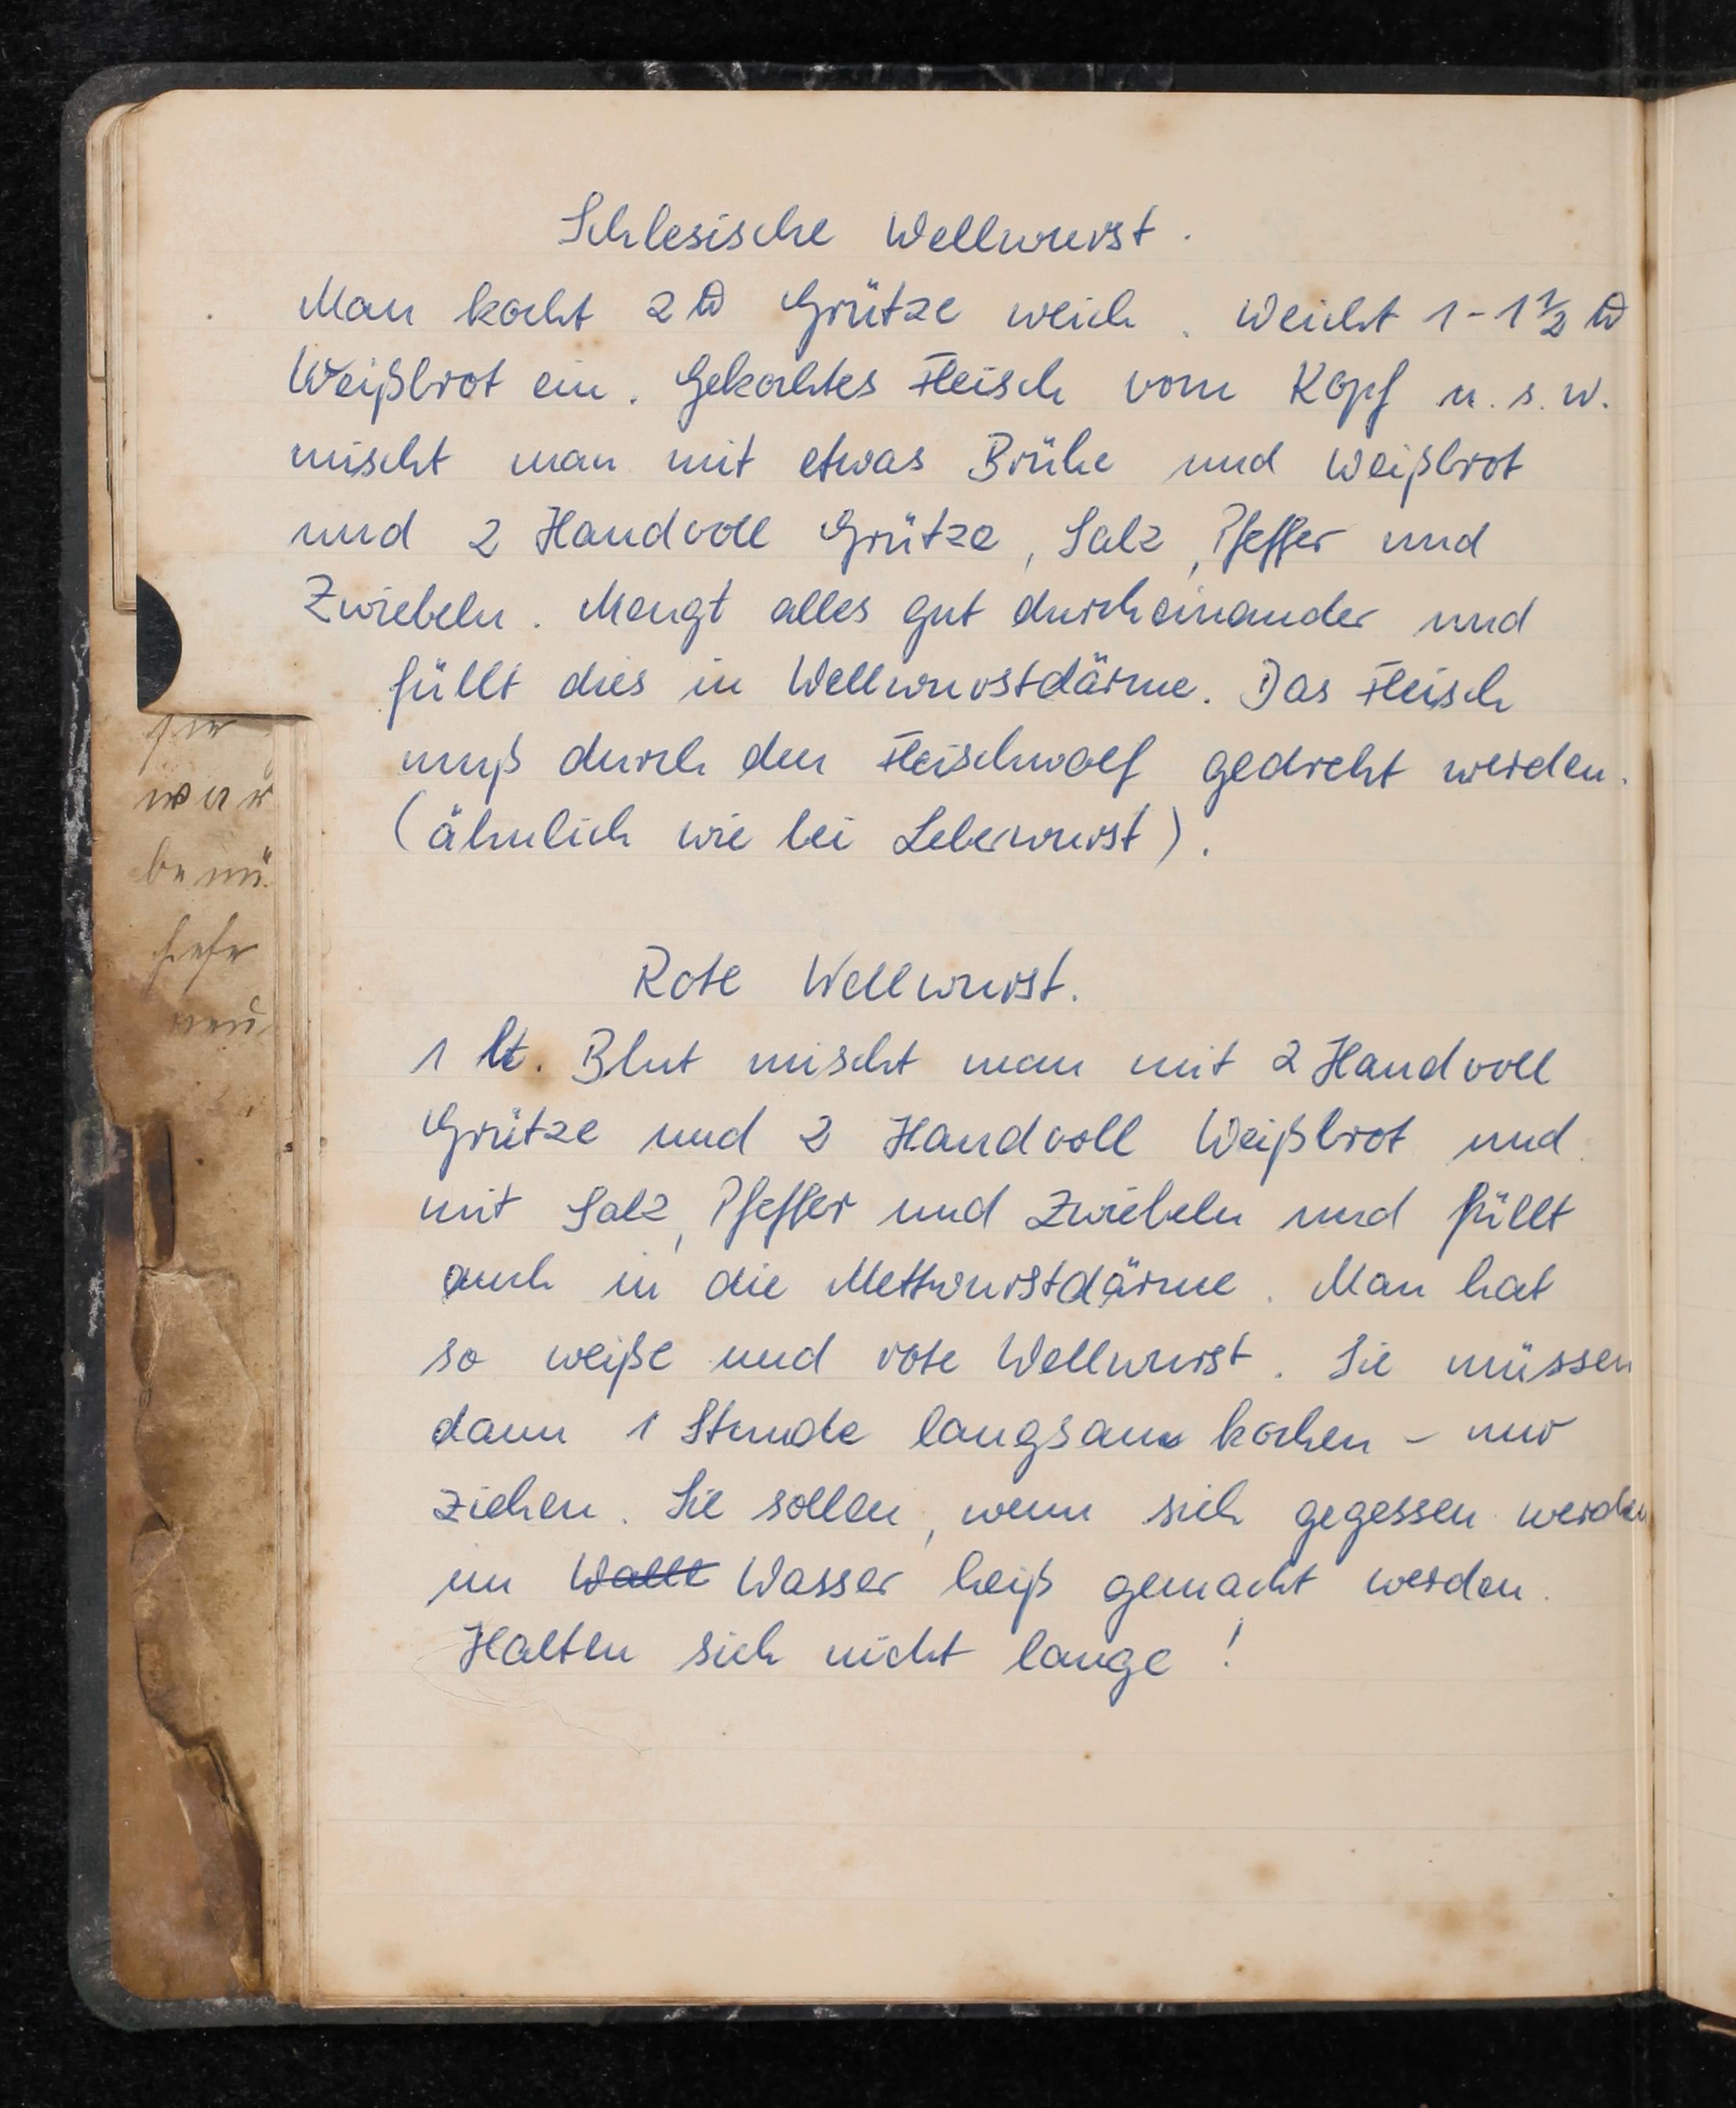 Schlesische Wellwurst.
Man kocht 2 ℔ Grütze weich. Weicht 1-1½ ℔
Weißbrot ein. Gekochtes Fleisch vom Kopf u. s. w.
mischt man mit etwas Brühe und Weißbrot
und 2 Handvoll Grütze, Salz, Pfeffer und
Zwiebeln. Mengt alles gut durcheinander und
füllt dies in Wellwurstdärme. Das Fleisch
muß durch den Fleischwolf gedreht werden.
(ähnlich wie bei Leberwurst).
Rote Wellwurst.
1 lt. Blut mischt man mit 2 Handvoll
Grütze und 2 Handvoll Weißbrot und
mit Salz, Pfeffer und Zwiebeln und füllt
auch in die Mettwurstdärme. Man hat
so weiße und rote Wellwurst. Sie müssen
dann 1 Stunde langsam kochen - nur
ziehen. Sie sollen, wenn sich gegessen werden
im Wasser heiß gemacht werden.
Halten sich nicht lange!